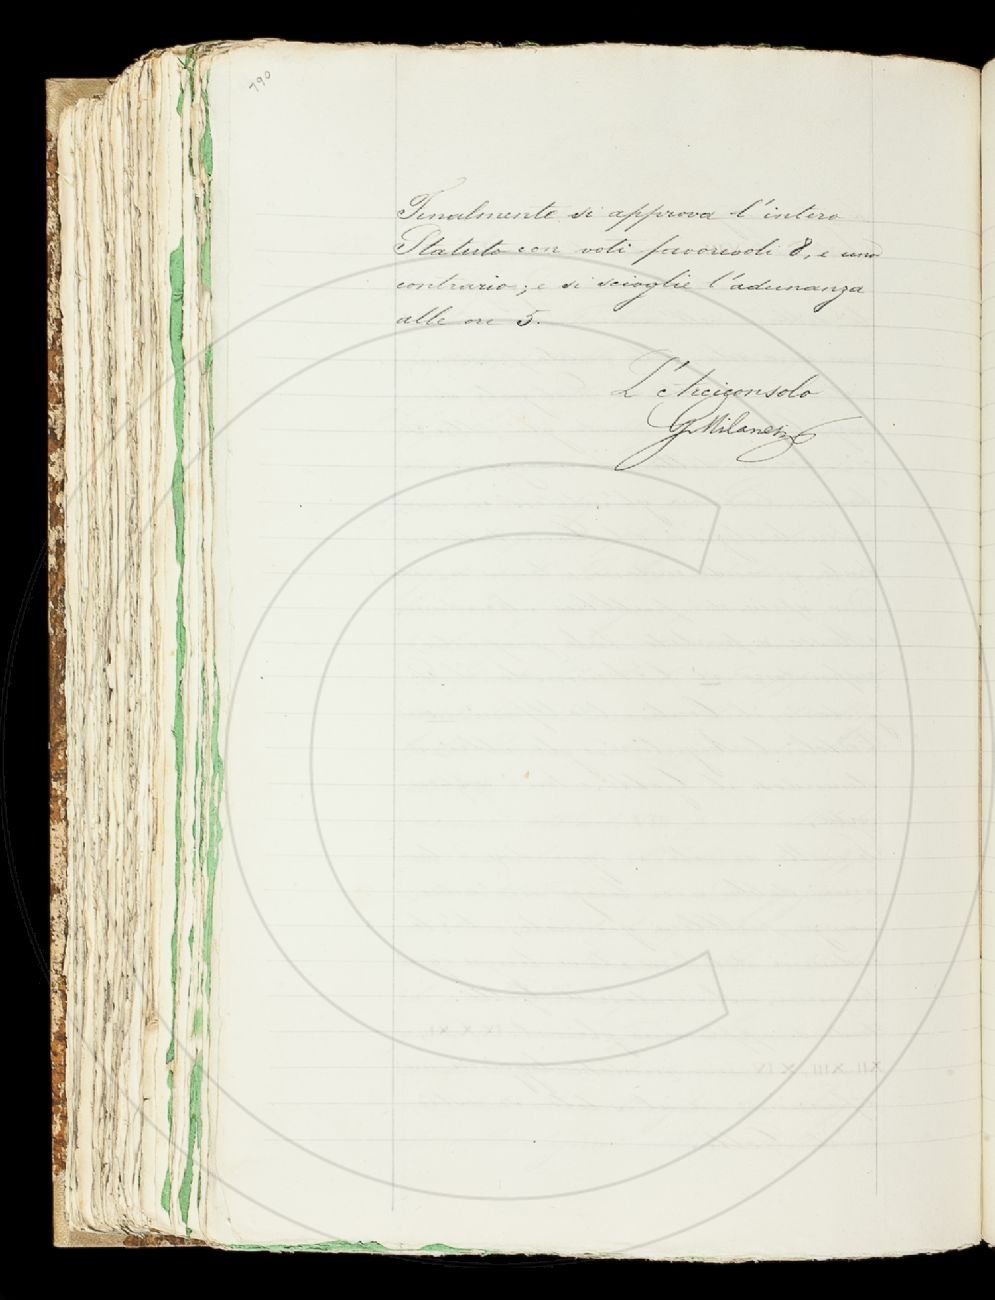 790
Finalmente si approva l'intero
Statuto con voti favorevoli 8, e uno
contrario; e si scioglie l'adunanza
alle ore 5.
L'Arciconsolo
G. Milanesi